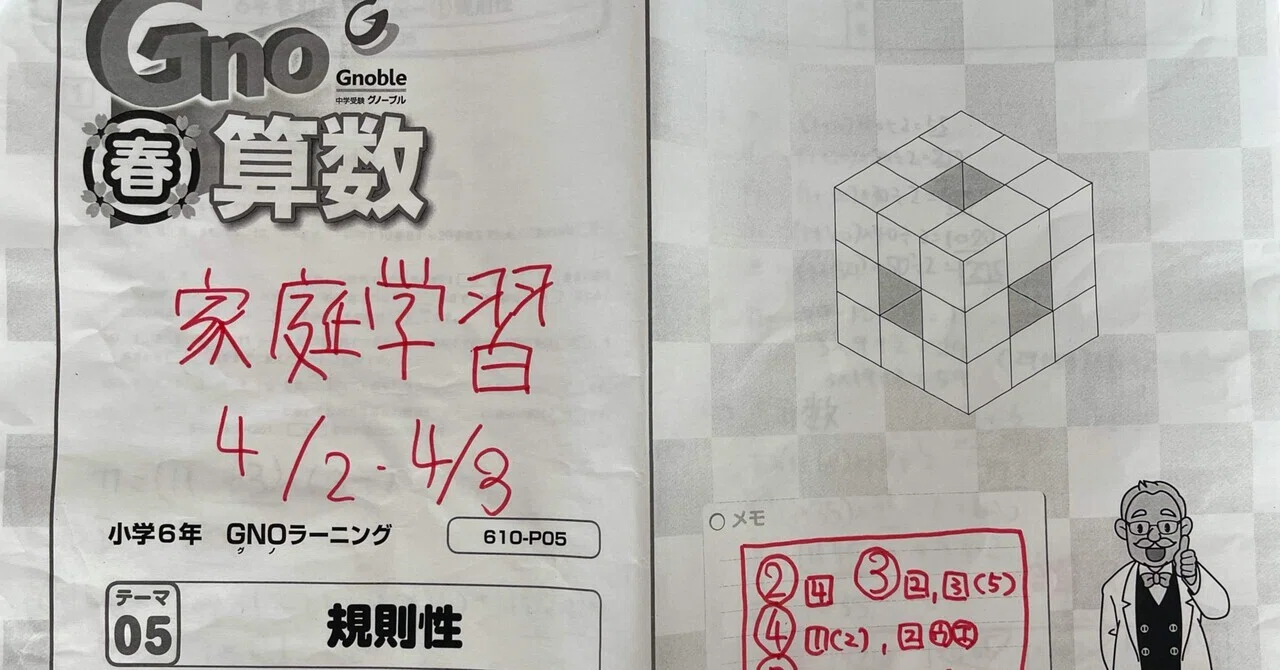 Gno
Gnoble
中学受験 グノーブル
春 算数
家庭学習
4/2・4/3
小学6年 GNOラーニング
グノ
610-P05
テーマ
05
規則性
メモ
② 4 ③ 2, 3 (5)
④ 1 (2), 2